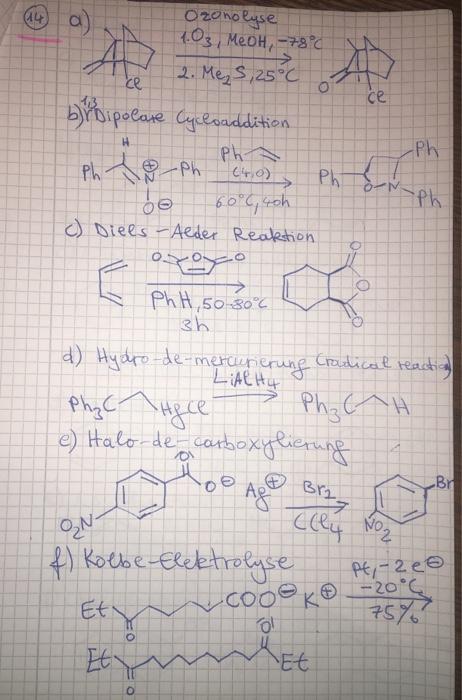 14 a) Ozonolyse
1. O3, MeOH, -78°C
2. Me2S, 25°C
Cl
O
Cl
b) 1,3 Dipolare Cycloaddition
H
Ph
Ph N⊕ -Ph (4,0) Ph
O⊖ 60°C, 40h Ph O-N Ph
c) Diels-Alder Reaktion
O O O O
O
PhH, 50-80°C O
3h
d) Hydro-de-mercurierung (radical reaction)
LiAlH4
Ph3C HgCl Ph3C H
e) Halo-de-carboxylierung
O
O⊖ Ag⊕ Br2 Br
O2N CCl4 NO2
f) Kolbe-Elektrolyse Pt, -2e⊖
-20°C
Et COO⊖ K⊕ 75%
O O
Et Et
O